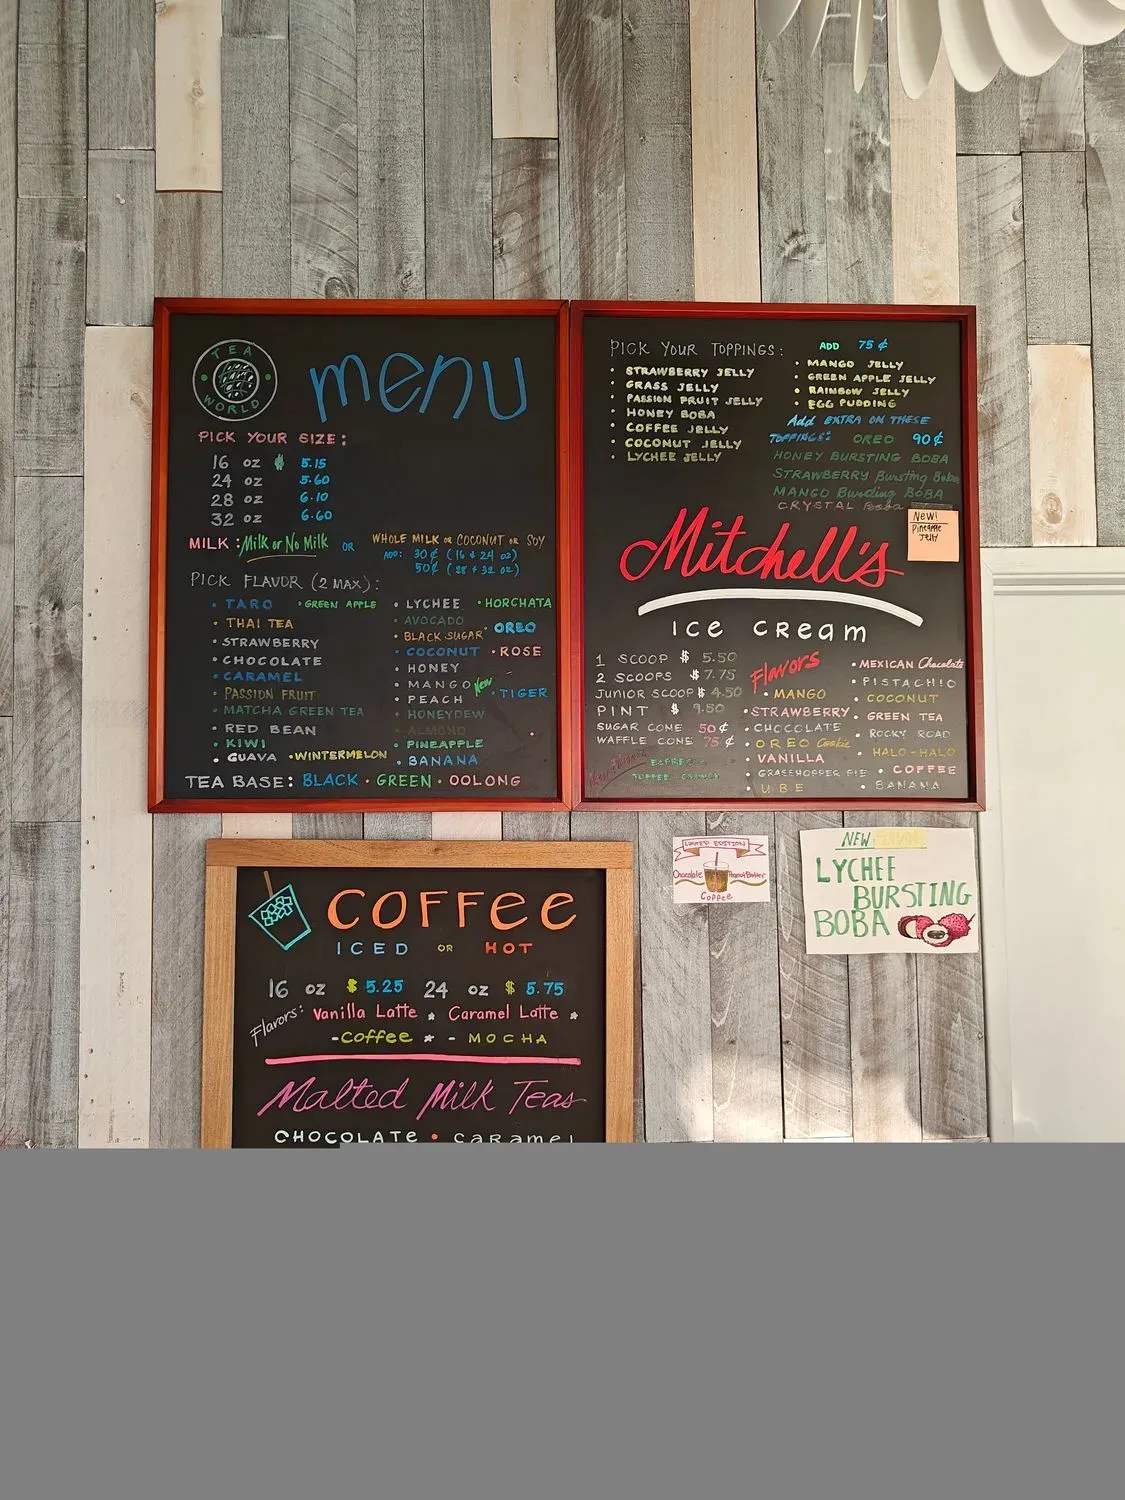 TEA
WORLD
menu
PICK YOUR SIZE:
16 oz $ 5.15
24 oz 5.60
28 oz 6.10
32 oz 6.60
MILK: Milk or No Milk OR WHOLE MILK OR COCONUT OR SOY
ADD: 30¢ (16 & 24 oz)
50¢ (28 & 32 oz)
PICK FLAVOR (2 MAX):
• TARO • GREEN APPLE
• THAI TEA
• STRAWBERRY
• CHOCOLATE
• CARAMEL
• PASSION FRUIT
• MATCHA GREEN TEA
• RED BEAN
• KIWI
• GUAVA • WINTERMELON
• LYCHEE • HORCHATA
• AVOCADO
• BLACK SUGAR • OREO
• COCONUT • ROSE
• HONEY
• MANGO New
• PEACH • TIGER
• HONEYDEW
• ALMOND
• PINEAPPLE
• BANANA
TEA BASE: BLACK • GREEN • OOLONG
PICK YOUR TOPPINGS: ADD 75¢
• STRAWBERRY JELLY
• GRASS JELLY
• PASSION FRUIT JELLY
• HONEY BOBA
• COFFEE JELLY
• COCONUT JELLY
• LYCHEE JELLY
• MANGO JELLY
• GREEN APPLE JELLY
• RAINBOW JELLY
• EGG PUDDING
Add EXTRA ON THESE
TOPPINGS: OREO 90¢
HONEY BURSTING BOBA
STRAWBERRY Bursting Boba
MANGO Bursting BOBA
CRYSTAL Boba
New!
Pineapple
Jelly
Mitchell's
ice cream
1 SCOOP $ 5.50
2 SCOOPS $ 7.75
JUNIOR SCOOP $ 4.50
PINT $ 9.50
SUGAR CONE 50¢
WAFFLE CONE 75¢
TOFFEE
Flavors
• MANGO
• STRAWBERRY
• CHOCOLATE
• OREO Cookie
• VANILLA
• GRASSHOPPER PIE
• UBE
• MEXICAN Chocolate
• PISTACHIO
• COCONUT
• GREEN TEA
• ROCKY ROAD
• HALO-HALO
• COFFEE
• BANANA
COFFEE
ICED OR HOT
16 oz $ 5.25 24 oz $ 5.75
Flavors: Vanilla Latte * Caramel Latte *
-Coffee * - MOCHA
Malted Milk Teas
CHOCOLATE • Caramel
LIMITED EDITION
Chocolate Peanut Butter
Coffee
NEW FLAVOR
LYCHEE
BURSTING
BOBA